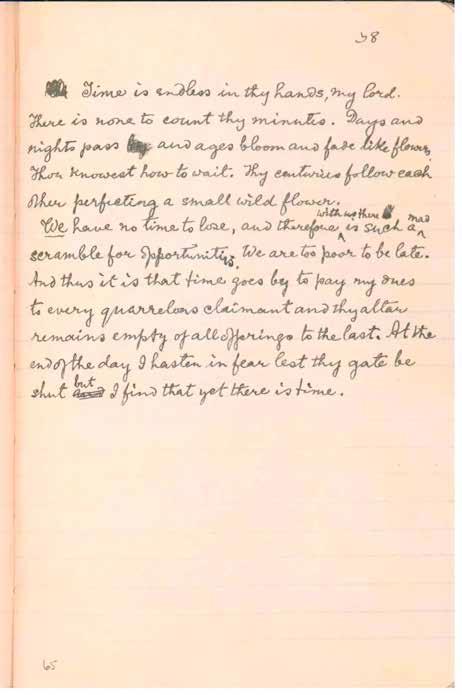 38
Time is endless in thy hands, my lord.
There is none to count thy minutes. Days and
nights pass and ages bloom and fade like flowers.
Thou knowest how to wait. Thy centuries follow each
other perfecting a small wild flower.
with us there mad
We have no time to lose, and therefore is such a
scramble for opportunities. We are too poor to be late.
And thus it is that time goes by to pay my dues
to every quarrelous claimant and thy altar
remains empty of all offerings to the last. At the
end of the day I hasten in fear lest thy gate be
but
shut and I find that yet there is time.
65